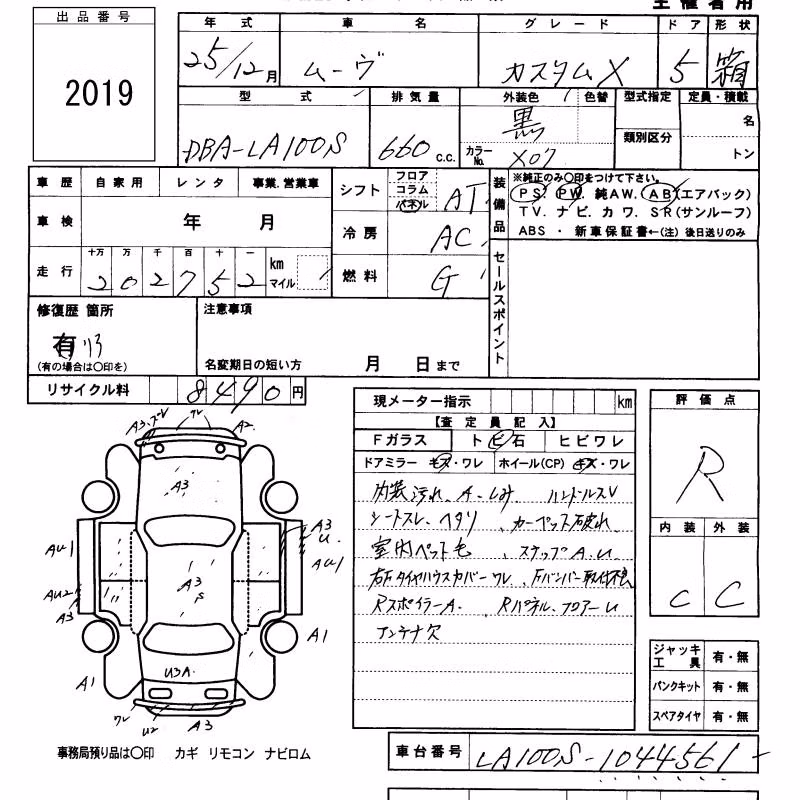 主催者用
出品番号
2019
年式 車名 グレード ドア 形状
25/12月 ムーヴ カスタムX 5 箱
型式 排気量 外装色 色替 型式指定 定員・積載
DBA-LA100S 660 c.c. 黒 類別区分 名
カラーNo. X07 トン
車歴 自家用 レンタ 事業.営業車
車検 年 月
走行 十万 万 千 百 十 一
202752 km マイル
シフト フロア コラム パネル AT
冷房 AC
燃料 G
装備品 ※純正のみ〇印をつけて下さい。
PS. PW. 純AW. AB(エアバック)
TV. ナビ. カワ. SR(サンルーフ)
ABS ・ 新車保証書←(注) 後日送りのみ
セールスポイント
修復歴 箇所
有 リア
(有の場合は〇印を)
注意事項
名変期日の短い方 月 日まで
リサイクル料 8490円
現メーター指示 km
【査定員記入】
Fガラス トビ石 ヒビワレ
ドアミラー キズ・ワレ ホイール(CP) キズ・ワレ
内装汚れ、A、しみ ハンドルスレ
シートスレ、ヘタリ 、カーペット破れ
室内ペット毛 、ステップA.U
右FタイヤハウスカバーワレFバンパー取付不良
RスポイラーA. 、Rパネル、フロアーU
アンテナ欠
評価点
R
内装 外装
C C
ジャッキ工具 有・無
パンクキット 有・無
スペアタイヤ 有・無
A3.ズレ ワレ A2
A3
A3
U
AU1 AU1
AU2
A3
A3
S
A1
A1
U3A
ワレ
U2
A3
事務局預り品は〇印 カギ リモコン ナビロム
車台番号 LA100S-1044561